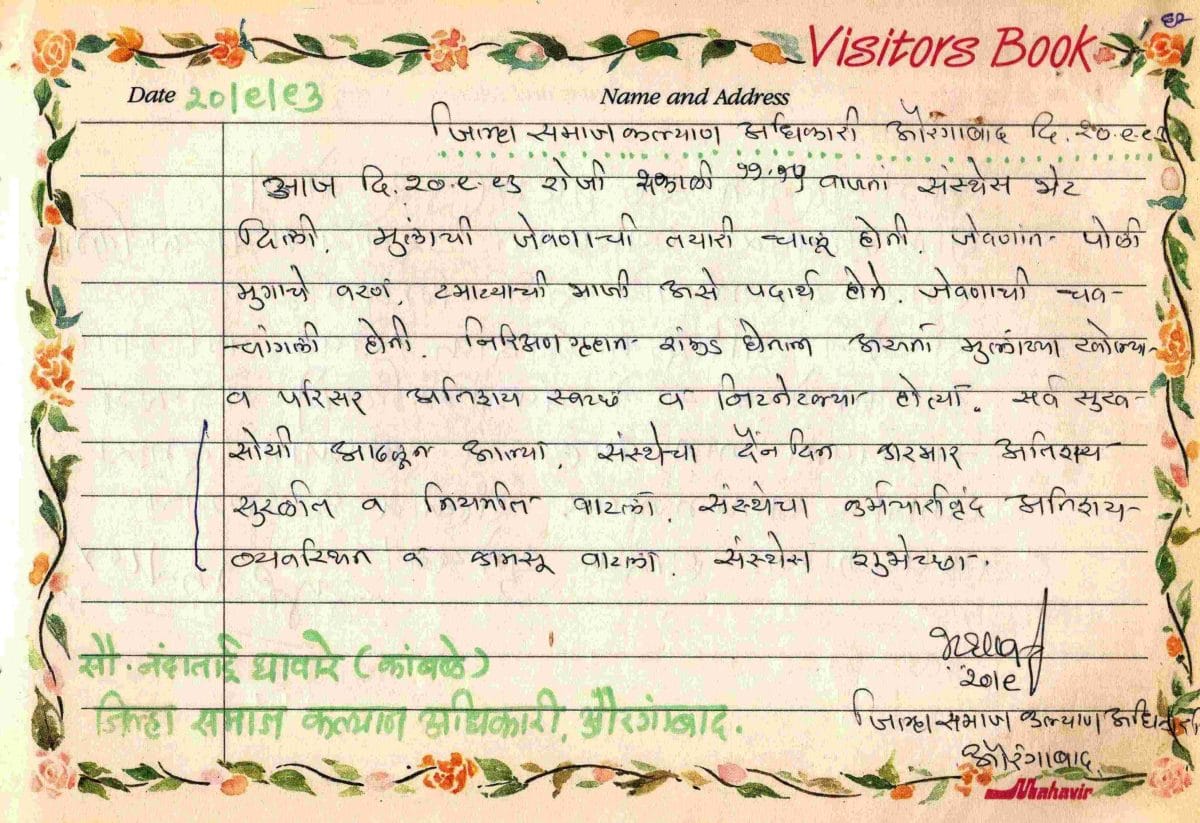 ६२
Visitors Book
Date २०/९/९३
Name and Address
जिल्हा समाज कल्याण अधिकारी औरंगाबाद दि. २०.९.९३
आज दि. २०.९.९३ रोजी सकाळी ११.१५ वाजता संस्थेस भेट
दिली. मुलांची जेवणाची तयारी चालू होती. जेवणांत पोळी
मुगाचे वरण, टमाट्याची भाजी असे पदार्थ होते. जेवणाची चव
चांगली होती. निरिक्षण गृहात राऊंड घेतला असता मुलांच्या खोल्या
व परिसर अतिशय स्वच्छ व निटनेटक्या होत्या. सर्व सुख
सोयी आढळून आल्या. संस्थेचा दैनंदिन कारभार अतिशय
सुरळीत व नियमीत वाटला. संस्थेचा कर्मचारीवृंद अतिशय
व्यवस्थित व कामसू वाटला. संस्थेस शुभेच्छा.
२०/९
सौ. नंदाताई घावारे (कांबळे)
जिल्हा समाज कल्याण अधिकारी, औरंगाबाद.
जिल्हा समाज कल्याण अधिकारी
औरंगाबाद.
Mahavir